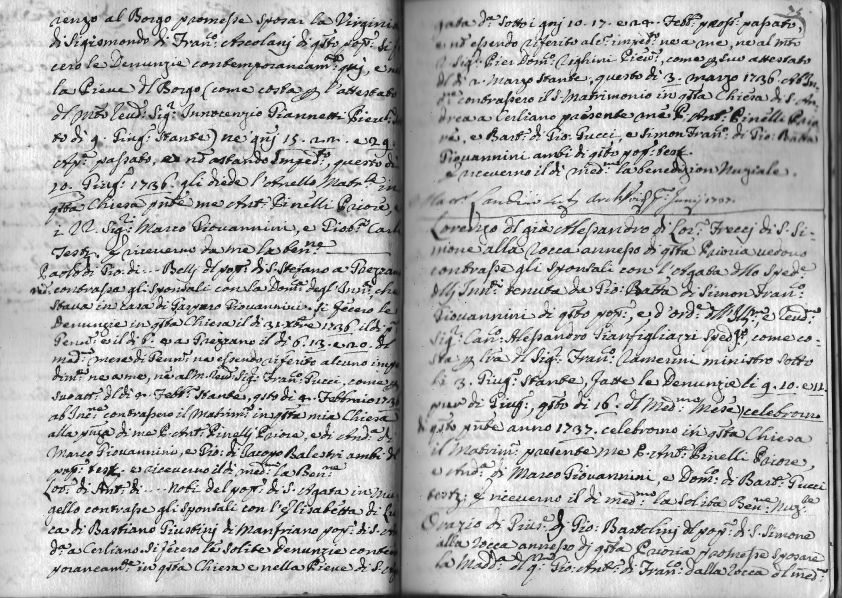 renzo al Borgo promesse sposar la Virginia
di Sigismondo di Fran: Ascolanj di qsto pop:
cero le Denunzie contemporaneam: quj, e
la Pieve del Borgo (come costa l'attestato
del Mto Reud: Sig: Innocenzio Giannetti Piev:
to di 9. Giug: stante) ne gnj 15. 22. e 29.
passato, e nō ostando Imped: questo dì
10. Giug: 1736. gli diede l'Anello
qsta Chiesa pnte me Ant: Pinelli Priore,
i Sig: Marco Giovannini, e Carl
Testj: riceverno da me la ben:ne
Paolo di Gio: di ... Bellj del pop: di S. Stefano a
contrasse gli Sponsali con la Dom: degl'Inn: che
stava in casa di Gasparo Giovannini. Si fecero le
Denunzie in qsta Chiesa il dì 31. Xbre 1736 il dì p:
Genn: e il dì 6. e a il dì 6. 13. e 20. del
med: mese di Genn: ne essendo riferito alcuno imp
dim: ne a me, ne al M. Reud: Sig: Fran: Pucci, come
suo att: del dì 2. Febb: stante, qsto dì 2. Febbraio 173
contrassero il Matrim: in qsta mia Chiesa
alla di me P. Ant: Pinellj Priore, e di And: di
Marco Giovannini, e Gio: di Jacopo Balestri ambi del
pop: testj. e riceverno il dì med: la Ben:ne
Lor: di Ant: di .... Nobi del pop: di S. Agata in Mu
gello contrasse gli Sponsali con l'Elisabetta di Lu
ca di Bastiano Giustini di Manfriano pop: di S. A
d: a Cerliano. Si fecero le solite denunzie conte
poraneam: in qsta Chiesa e nella Pieve di S. A
gata d: sotto i gnj 10. 17. e 24. Febb: pross: passato,
e nō essendo riferito alc: imped: ne a me, ne al mto
Sig: Pier Dom: Ughini Piev:, come suo attestato
del dì 2. Marzo stante, questo dì 3. marzo 1736.
contrassero il S. Matrimonio in qsta Chiesa di S. An
drea a Cerliano presente me P. Ant: Pinelli Prio
re, e Bart: di Gio: Pucci, e Simon Fran: di Gio: Batta
Giovannini ambi di qsto pop: testj
e riceverno il dì med: la benedizion Nuziale.
Junij 1737.
Lorenzo del già Alessandro di Lor: di S. Si-
mone alla Rocca annesso di qsta Prioria
contrasse gli Sponsali con l'Agata dello Sped:
degl'Inn: tenuta da Gio: Batta di Simon Fran:
Giovannini di qsto pop:, e d'ord: dell'Ill: e Reud:
Sig: Can: Alessandro Gianfigliazzi Sped: come co-
sta di Sig: Fran: Camerini ministro sotto
li 3. Giug: stante, fatte le Denunzie li 9. 10. e 11.
pur di Giug: qsto dì 16. del Med:mo Mese celebrorno
di qsto pnte anno 1737. celebrorno in qsta Chiesa
il Matrim: presente me P. Ant: Pinelli Priore,
e And: di Marco Giovannini, e Dom: di Bart: Pucci
testj: riceverno il dì med:mo la solita Ben:ne Nuz:le
Orazio di Gius: di Gio: Bartolinj del pop: di S. Simone
alla Rocca annesso di qsta Prioria promesse sposare
la Madd: del q: Gio: Ant: di Fran: dalla Rocca del med: